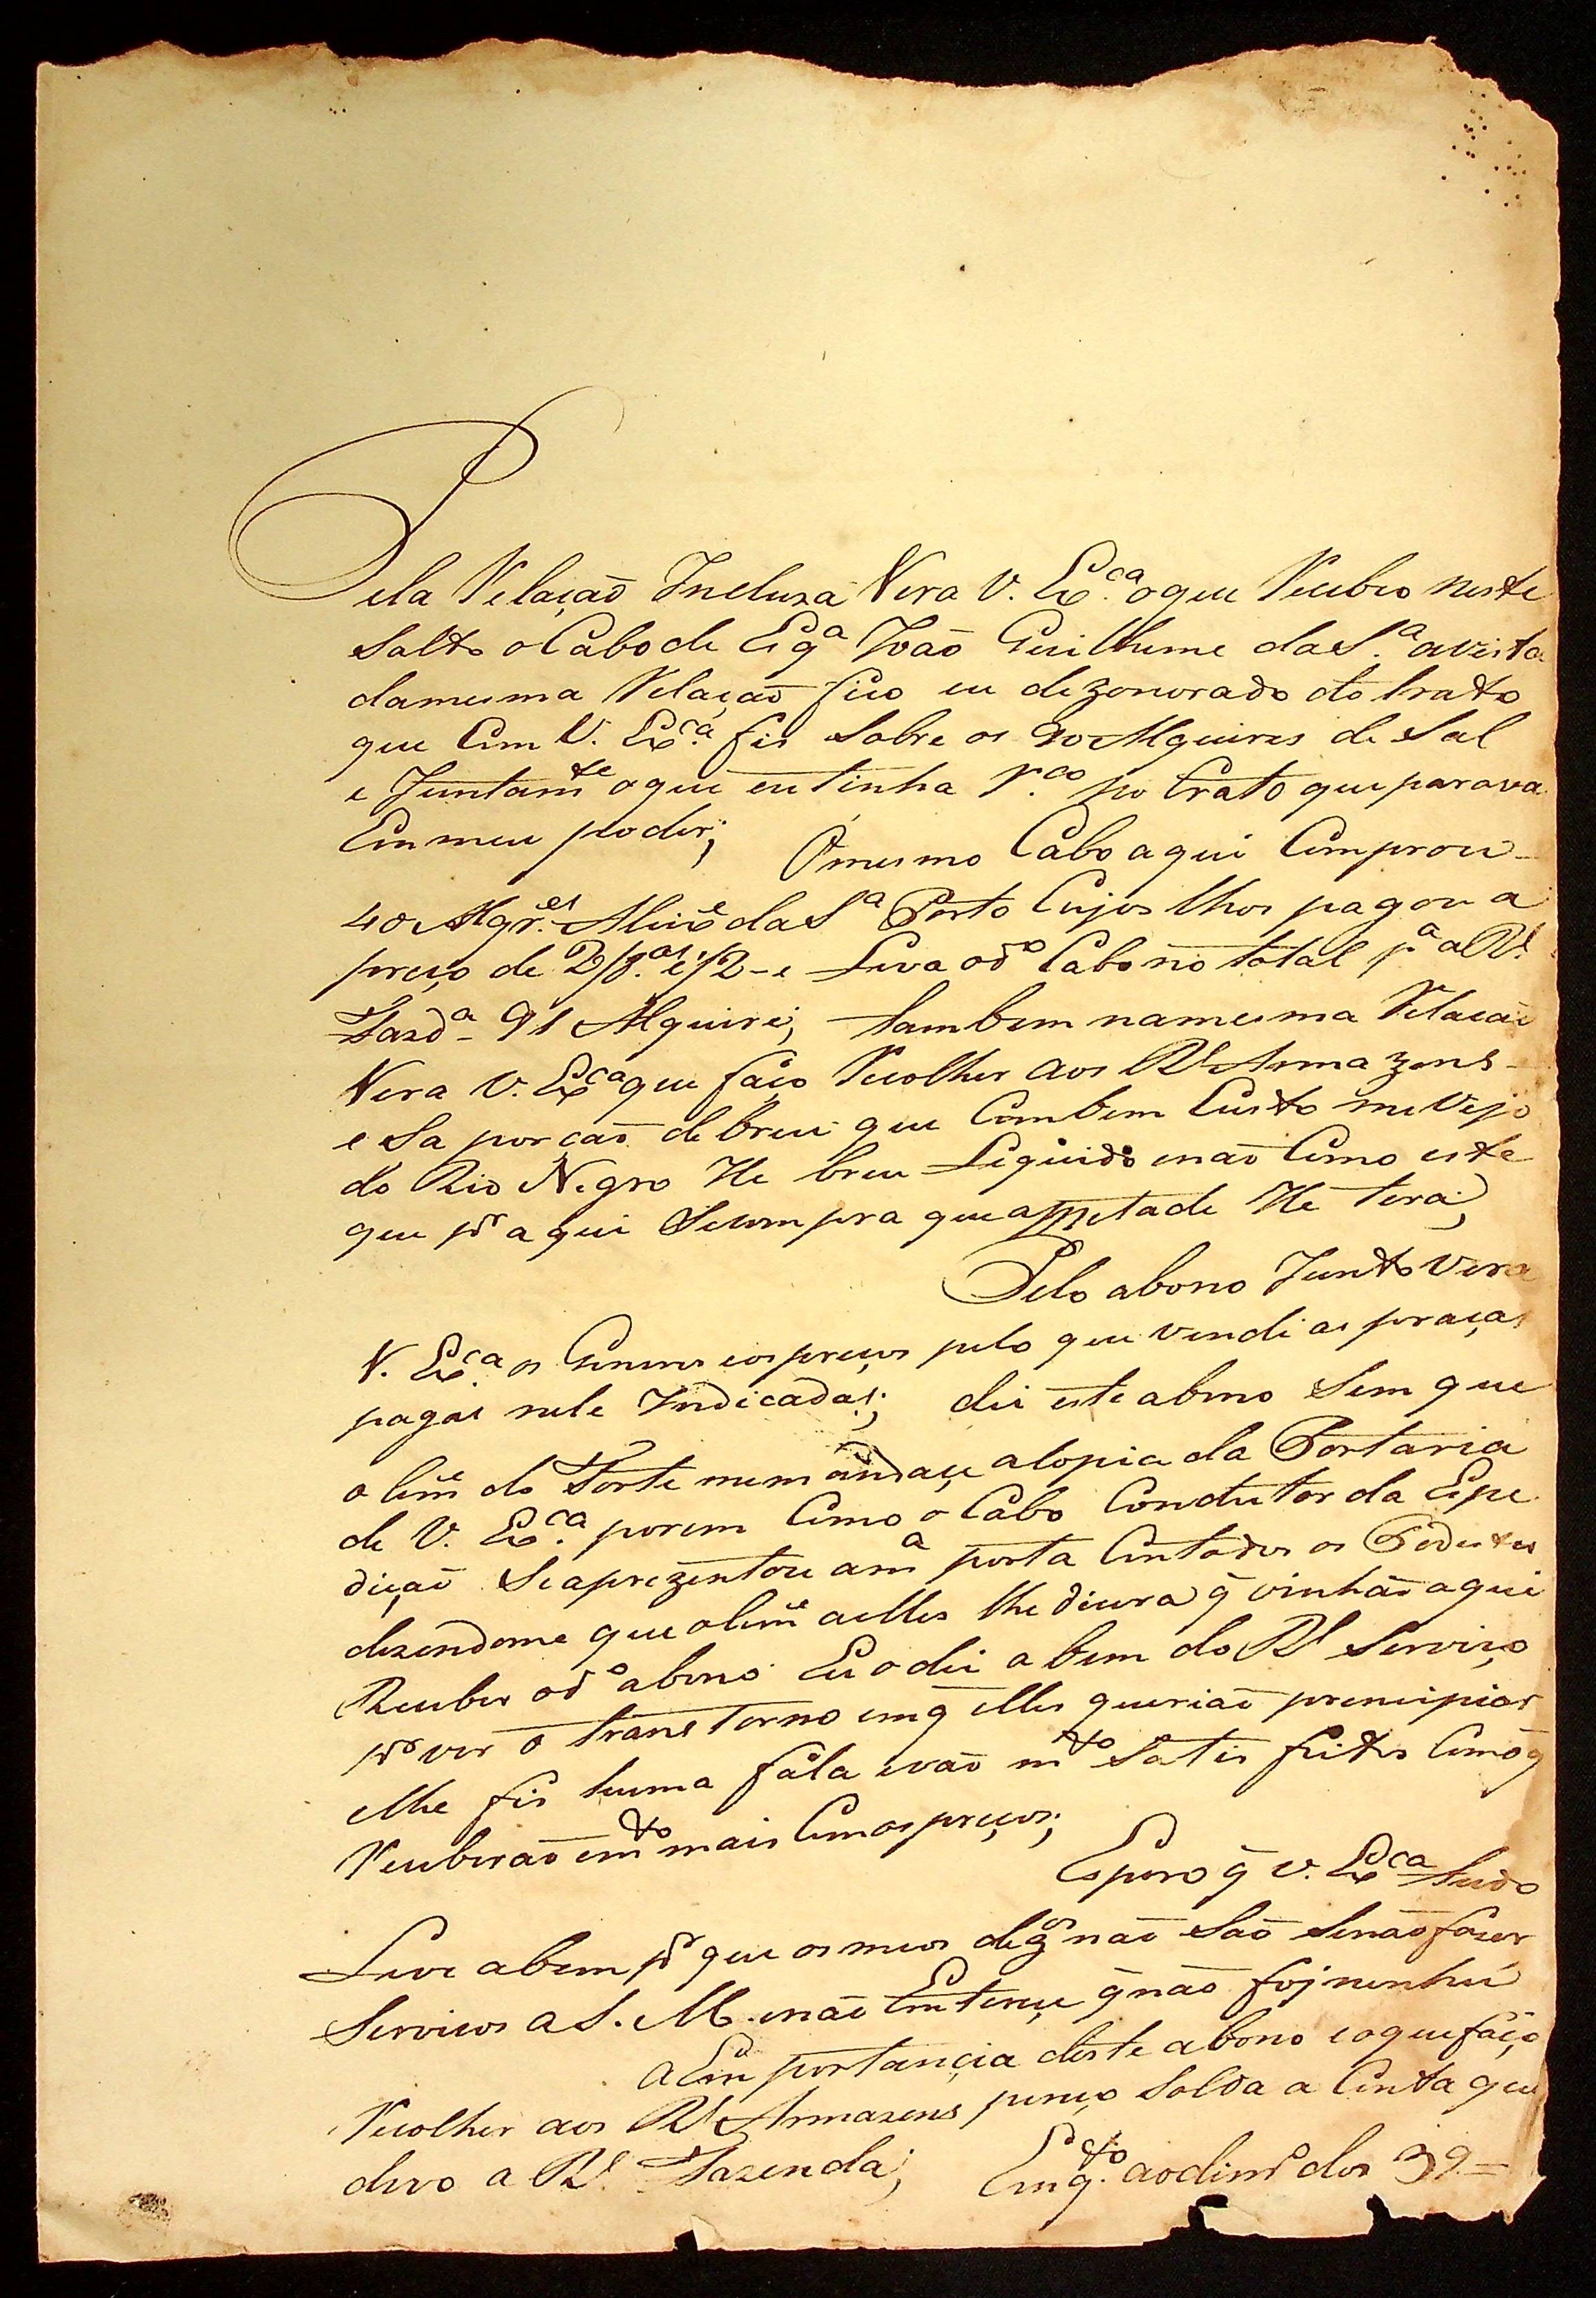 Pela Relação Incluza Vera V. Exca. o que Recebeo neste
Salto o Cabo de Esqa João Guilherme da Sa. avista
damesma Relação fico eu dezonorado do trato
que Com V. Exca. fis Sobre os 90 Alqueires de Sal
e Juntamte o que eu tinha Rco. no trato que parava
Em meu poder; O mesmo Cabo aqui Comprou
40 Alqres. da Sa Porto Cujos lhos pagou a
preço de e 1/2 - e Leva o do Cabo no total pa a Rl.
Fazda - 91 Alqueires; tambem namesma Relação
Vera V. Exca que faço Recolher aos Rs Armazens
e Sa porção de breu que Com bem Custo me Vejo
do Rio Negro He breu Liquido enão Como este
que pr aqui Secompra que ametade He terra;
Pelo abono Junto Vera
V. Exca. os Generos eos preços pelo que vendi as praças
pagas nele Indicadas; dei este abono Sem que
o Come do Forte memandaçe a Copia da Portaria
de V. Exca. porem Como o Cabo Condutor da Espe
dição Seaprezentou ama porta Contodos os Pedestes
dezendome que o Come aelles lhe dicera q̃ vinhão aqui
Receber o do abono Eu o dei abem do Rl Serviço
pr ver o transtorno emq̃ elles querião principiar
elhe fis huma fala evão mto Satis feitos Comoq̃
Receberão emto mais Comos preços;
Espero q̃ V. Exca tudo
Leve abem pr que os meus dezos não São Senão fazer
Servicos a S. M. enão Entereçe q̃ não foj nenhũ
a Emportancia deste abono eoque faço
Recolher aos Rs Armazens penço Solda a Conta que
devo a Rl. Fazenda; Emqto. aodinro dos 39=